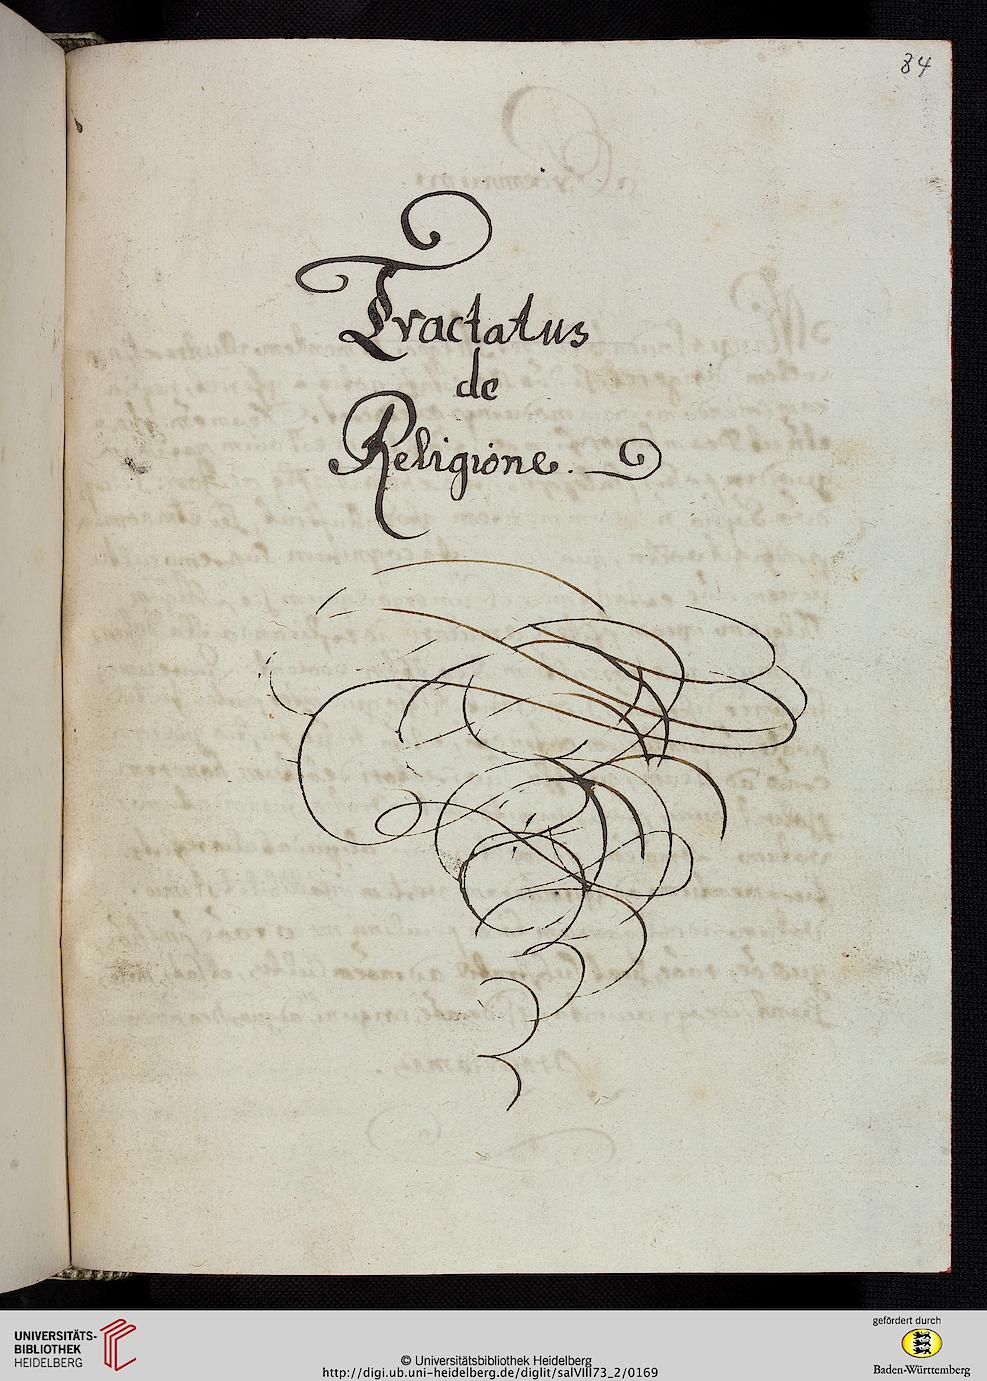 84
Tractatus
de
Religione.
UNIVERSITÄTS-
BIBLIOTHEK
HEIDELBERG
© Universitätsbibliothek Heidelberg
http://digi.ub.uni-heidelberg.de/diglit/salVIII73_2/0169
gefördert durch
Baden-Württemberg